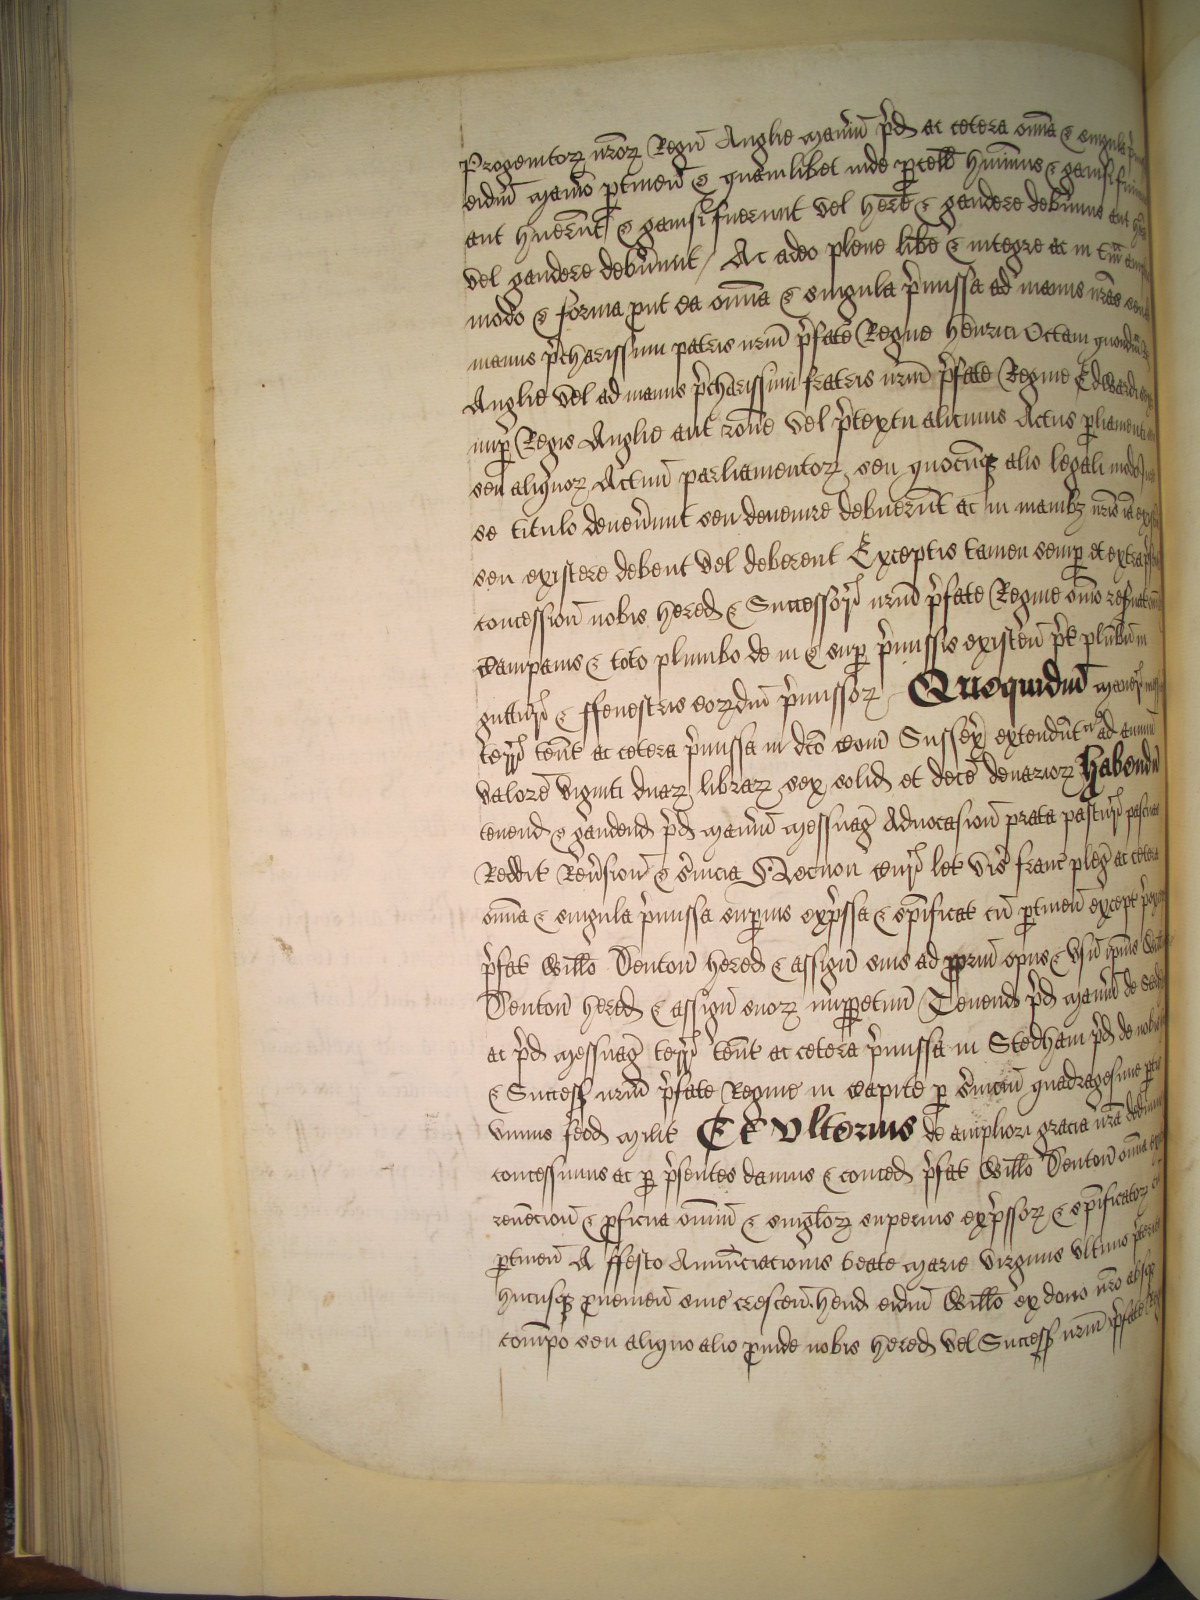 Progenitoꝝ nr̃oꝝ Regũ Anglie Mañiũ p̃d ac cetera om̃ia & singula
eidm̃ Mañio ꝑtineñ & quamlibet inde ꝑcelł hũimus & gauisi
aut hũerũt & gauisi fuerunt vel hẽre & gaudere debũimus aut
vel gaudere debũunt / Ac adeo plene libẽ & integre ac in
modo & forma put ea om̃ia & singula p̃missa ad manus nr̃as
manus p̃charissimi patris nrm̃ p̃fate Regine henrici Octavi quondm̃
Anglie vel ad manus p̃charissimi fratris nrm̃ p̃fate Regine Edwardi
nuꝑ Regis Anglie aut rõne vel p̃textu alicuius Actus ꝑliamenti
seu aliquoꝝ Actuũ parliamentoꝝ seu quocũqꝫ alio legali modo
se titulo deveñunt seu devenire debuerũt ac in manibꝫ nr̃is
seu existere debent vel deberent Exceptis tamen semꝑ et extra
concession̄ nobis hered & Successor̃ nrm̃ p̃fate Regine om̃io
campanis & toto plumbo de in & suꝑ p̃missis existen̄ p̃t plũbũ in
guttur̃ & ffenestris eorꝝdm̃ p̃missoꝝ Quequidm̃ Maner̃
terr̃ teñt ac cetera p̃missa in dc̃o Com̃ Sussex extendũt ad annũ
valorẽ viginti duaꝝ libraꝝ sex solid et decẽ denarioꝝ Habend
tenend & gaudend p̃d Mañiũ Messuag̃ Advocasion̄ prata pastur̃ pascuas
Reddit Rev̄sion̄ & s̃vicia Necnon cur̃ let vis̃ franc̃ pleg̃ ac cetera
om̃ia & singula p̃missa suꝑius exp̃ssa & sp̃ificat cũ ꝑtineñ except
p̃fat Willo Denton̄ hered & assign̄ suis ad ꝓprm̃ opus & usũ ip̃ius
Denton̄ hered & assign̄ suoꝝ inꝑpetuũ Tenend p̃d Mañiũ de
ac p̃d Messuag̃ terr̃ teñt ac cetera p̃missa in Stedham p̃d de nobis
& Success̃ nrm̃ p̃fate Regine in capite ꝑ s̃viciũ quadragesime ꝑtis
unius feod Milit Et Ulterius de ampliori gracia nr̃a dedimus
concessimus ac ꝑ p̃sentes damus & conced p̃fat Willo Denton̄ om̃ia
revẽcion̄ & ꝓficua om̃iũ & singloꝝ superius exp̃ssoꝝ & sp̃ificatoꝝ
ꝑtineñ A ffesto Annũciationis beate Marie virginis ultimo
hucusqꝫ ꝓveneñ sive crescen̄ hend eidm̃ Willo ex dono nr̃o absqꝫ
comp̃o seu aliquo alio ꝓinde nobis hered vel Success̃ nrm̃ p̃fate